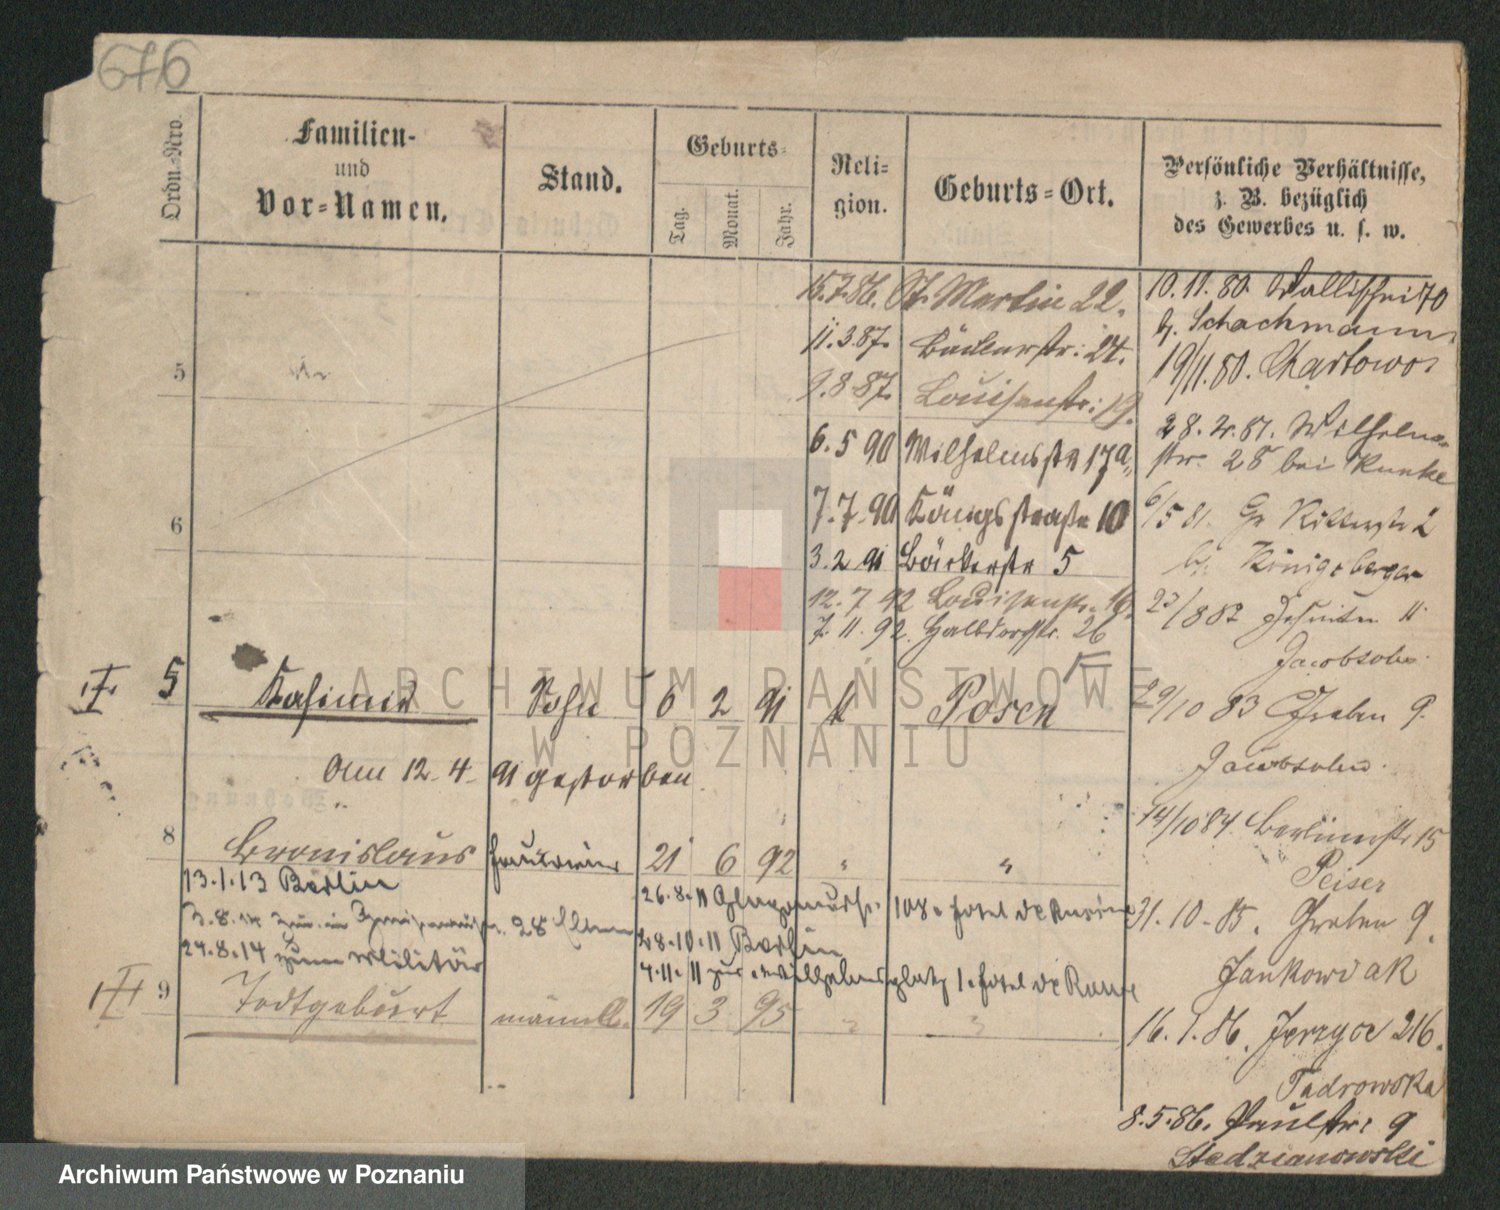 676
Ordn.-Nro.
Familien-
und
Vor-Namen.
Stand.
Geburts-
Tag.
Monat.
Jahr.
Reli-
gion.
Geburts-Ort.
Persönliche Verhältnisse,
z. B. bezüglich
des Gewerbes u. s. w.
15.7.86. St. Martin 22.
11.3.87. Bäckerstr. 24.
9.8.87. Louisenstr. 19.
6.5 90 Wilhelmsstr 17a
7.7.90 Königsstraße 10
3.2 91 Bäckerstr 5
12.7 92 Louisenstr. 19.
7.11.92. Halbdorfstr. 26
10.11.80. Wallischei 70
b. Schachmann
19/11.80. Chartowo
28.2.81. Wilhelm-
str. 25 bei Kunke
6/5 81. Gr Ritterstr 2
b. Königsberger
23/8 83 Jesuiten 11
Jacobsohn
29/10 83 Graben 9.
Jacobsohn.
14/10 84 Berlinerstr 15
Peiser
31.10.85. Graben 9.
Jankowiak
16.1.86. Jerzyce 216.
Tadrowska
8.5.86. Paulstr. 9
Stedzianowski
5
6
5 Kasimir Sohn 6 2 91 k Posen
Am 12.4.91 gestorben
8 Bronislaus 21 6 92 " "
13.1.13 Berlin
26.8.11 108. Hotel de
3.8.14 28 Eltern
28.10.11 Berlin
29.8.14 zum Militär
4.11.11 zur. Wilhelmsplatz 1. Hotel de Rome
9 Todtgeburt männl. 19 3 95 " "
ARCHIWUM PAŃSTWOWE
W POZNANIU
Archiwum Państwowe w Poznaniu